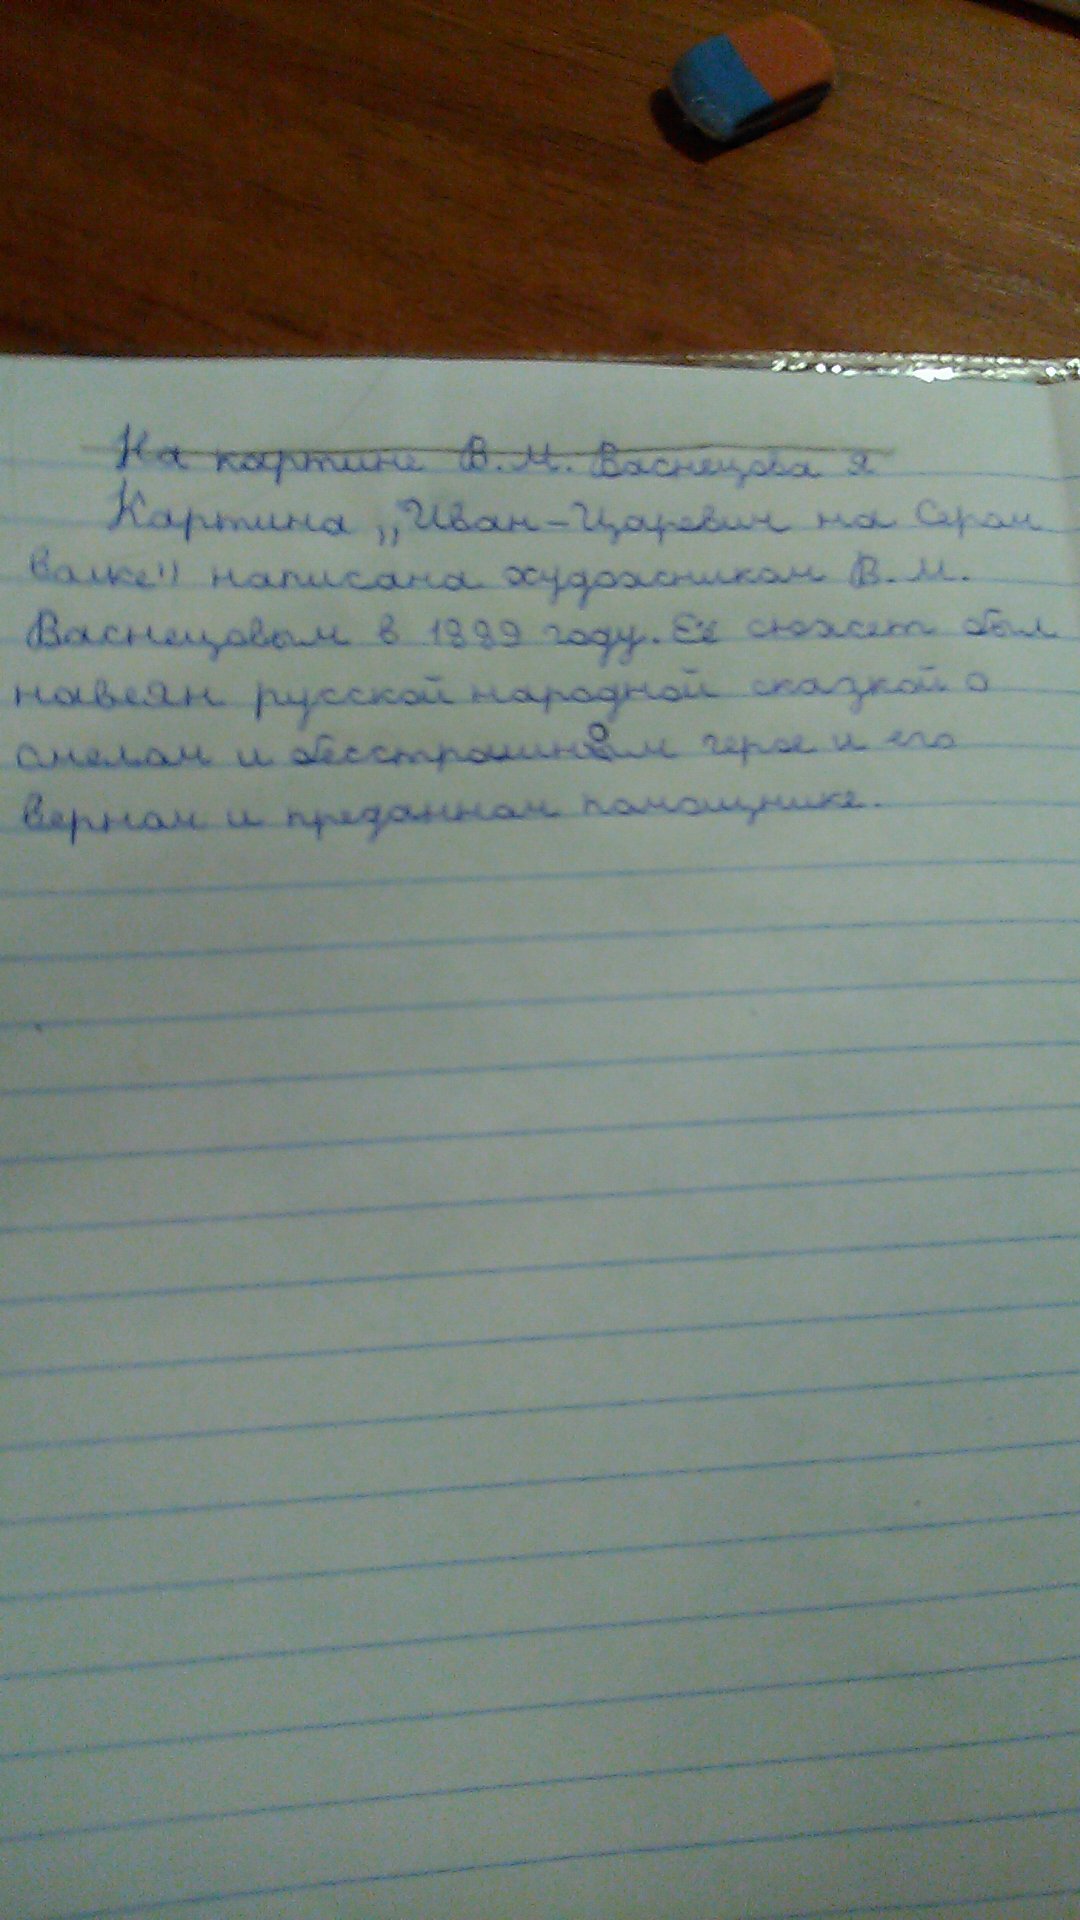 На картине В.М. Васнецова я
Картина „Иван-Царевич на Сером
волке" написана художником В.М.
Васнецовым в 1889 году. Её сюжет был
навеян русской народной сказкой о
смелом и бесстрашном герое и его
верном и преданном помощнике.